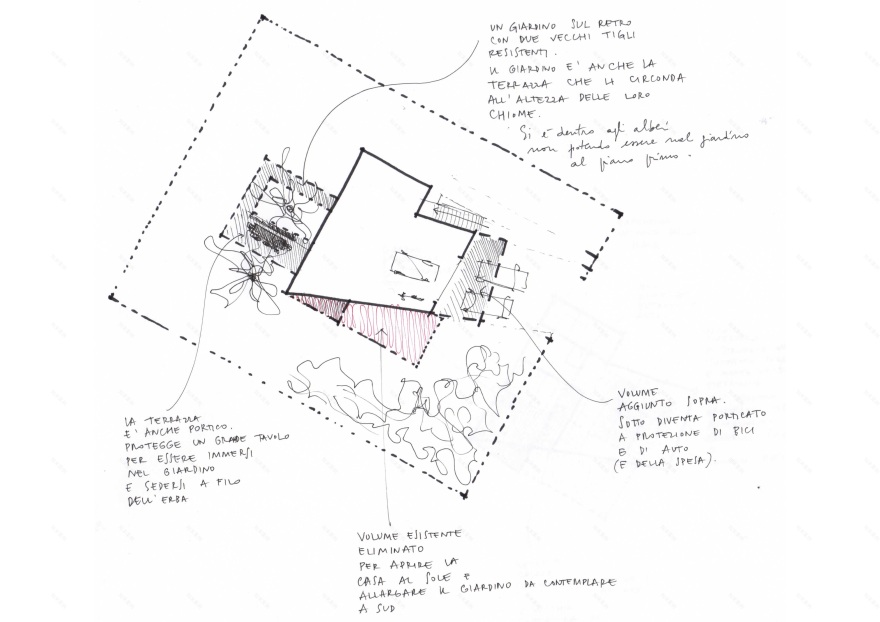 UN GIARDINO SUL RETRO
CON DUE VECCHI TIGLI
RESISTENTI.
IL GIARDINO E' ANCHE LA
TERRAZZA CHE LI CIRCONDA
ALL'ALTEZZA DELLE LORO
CHIOME.
Si è dentro agli alberi
non potendo essere nel giardino
al piano primo.
VOLUME
AGGIUNTO SOPRA.
SOTTO DIVENTA PORTICATO
A PROTEZIONE DI BICI
E DI AUTO
(E DELLA SPESA).
LA TERRAZZA
E' ANCHE PORTICO.
PROTEGGE UN GRANDE TAVOLO
PER ESSERE IMMERSI
NEL GIARDINO
E SEDERSI A FILO
DELL'ERBA
VOLUME ESISTENTE
ELIMINATO
PER APRIRE LA
CASA AL SOLE E
ALLARGARE IL GIARDINO DA CONTEMPLARE
A SUD